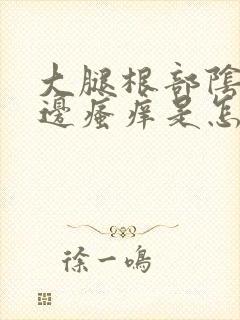 大腿根部陰
邊瘙痒是怎
徐一鳴